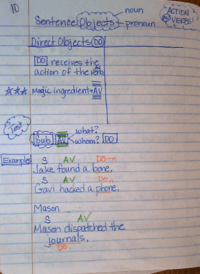 10
noun
Sentence Objects
pronoun
ACTION
VERBS!
Direct Objects DO
DO receives the
action of the verb
Magic ingredient = AV
Test
Sub AV what?
whom? DO
Example
S AV DO-n
Jake found a bone.
S AV DO-n
Gavi hacked a phone.
Mason
S AV
Mason dispatched the
journals.
DO